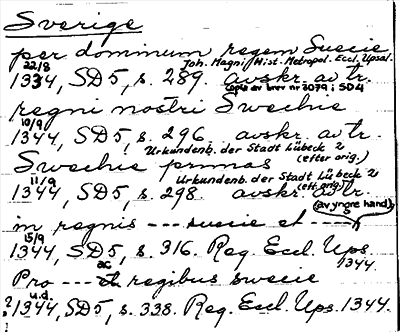 Sverige
per dominum regem Suecie
22/8 Joh. Magni Hist. Metropol. Eccl. Upsal.
1334, SD5, s. 289. avskr. av tr.
Copia av brev nr 3079 i SD4
regni nostri Swechie
10/9
1344, SD5, s. 296. avskr. av tr.
Urkundenb. der Stadt Lübeck 2
Swechie primas (efter orig.)
11/9 Urkundenb. der Stadt Lübeck 2
1344, SD5, s. 298. avskr. av tr.
(eft. orig.)
(av yngre hand)
in regnis --- suecie et ---
15/9
1344, SD5, s. 316. Reg. Eccl. Ups.
1344.
Pro --- et regibus swecie
ac
u.d.
? 1344, SD5, s. 338. Reg. Eccl. Ups. 1344.